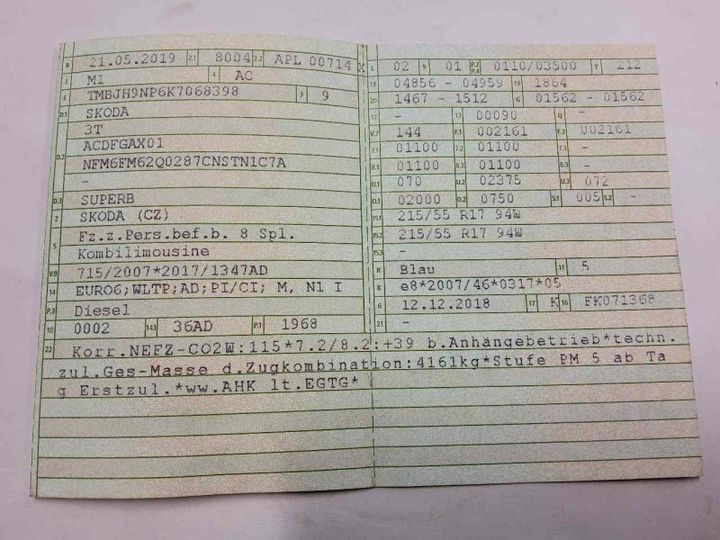 B 21.05.2019 2.1 8004 2.2 APL 00714 X
J M1 4 AC
E TMBJH9NP6K7068398 3 9
D.1 SKODA
3T
D.2 ACDFGAX01
NFM6FM62Q0287CNSTN1C7A
-
D.3 SUPERB
2 SKODA (CZ)
5 Fz.z.Pers.bef.b. 8 Spl.
Kombilimousine
V.9 715/2007*2017/1347AD
14 EURO6;WLTP;AD;PI/CI; M, N1 I
P.3 Diesel
10 0002 14.1 36AD P.1 1968
L 02 9 01 P.2 P.4 0110/03500 T 212
18 04856 - 04959 19 1864
20 1467 - 1512 G 01562 - 01562
12 - 13 00090 Q -
V.7 144 F.1 002161 F.2 002161
7.1 01100 7.2 01100 7.3 -
8.1 01100 8.2 01100 8.3 -
U.1 070 U.2 02375 U.3 072
O.1 02000 O.2 0750 S.1 005 S.2 -
15.1 215/55 R17 94W
15.2 215/55 R17 94W
15.3 -
R Blau 11 5
K e8*2007/46*0317*05
6 12.12.2018 17 K 16 FK071368
21 -
22 Korr.NEFZ-CO2W:115*7.2/8.2:+39 b.Anhängebetrieb*techn.
zul.Ges-Masse d.Zugkombination:4161kg*Stufe PM 5 ab Ta
g Erstzul.*ww.AHK lt.EGTG*